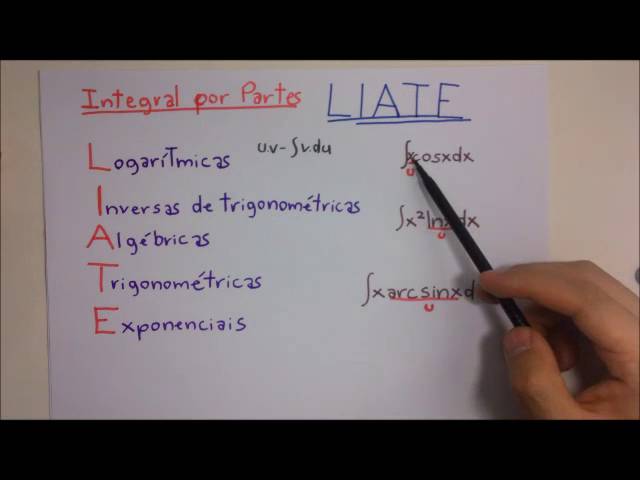 Integral por Partes LIATE
LogaríTmicas
u.v-∫v.du
Inversas de trigonométricas
Algébricas
Trigonométricas
Exponenciais
∫xcosxdx
u
∫x²lnxdx
u
∫xarcsinxd
u